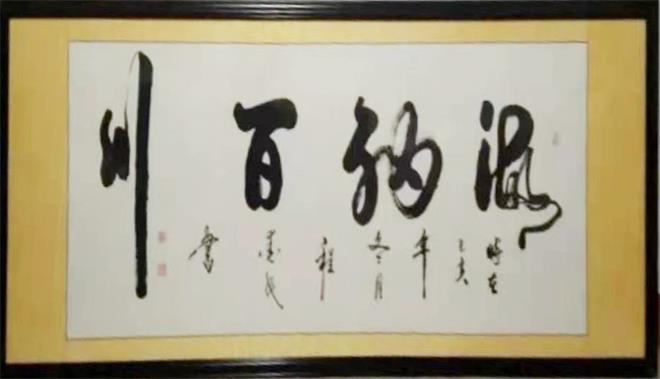 海纳百川
时在己亥年冬月程春民書